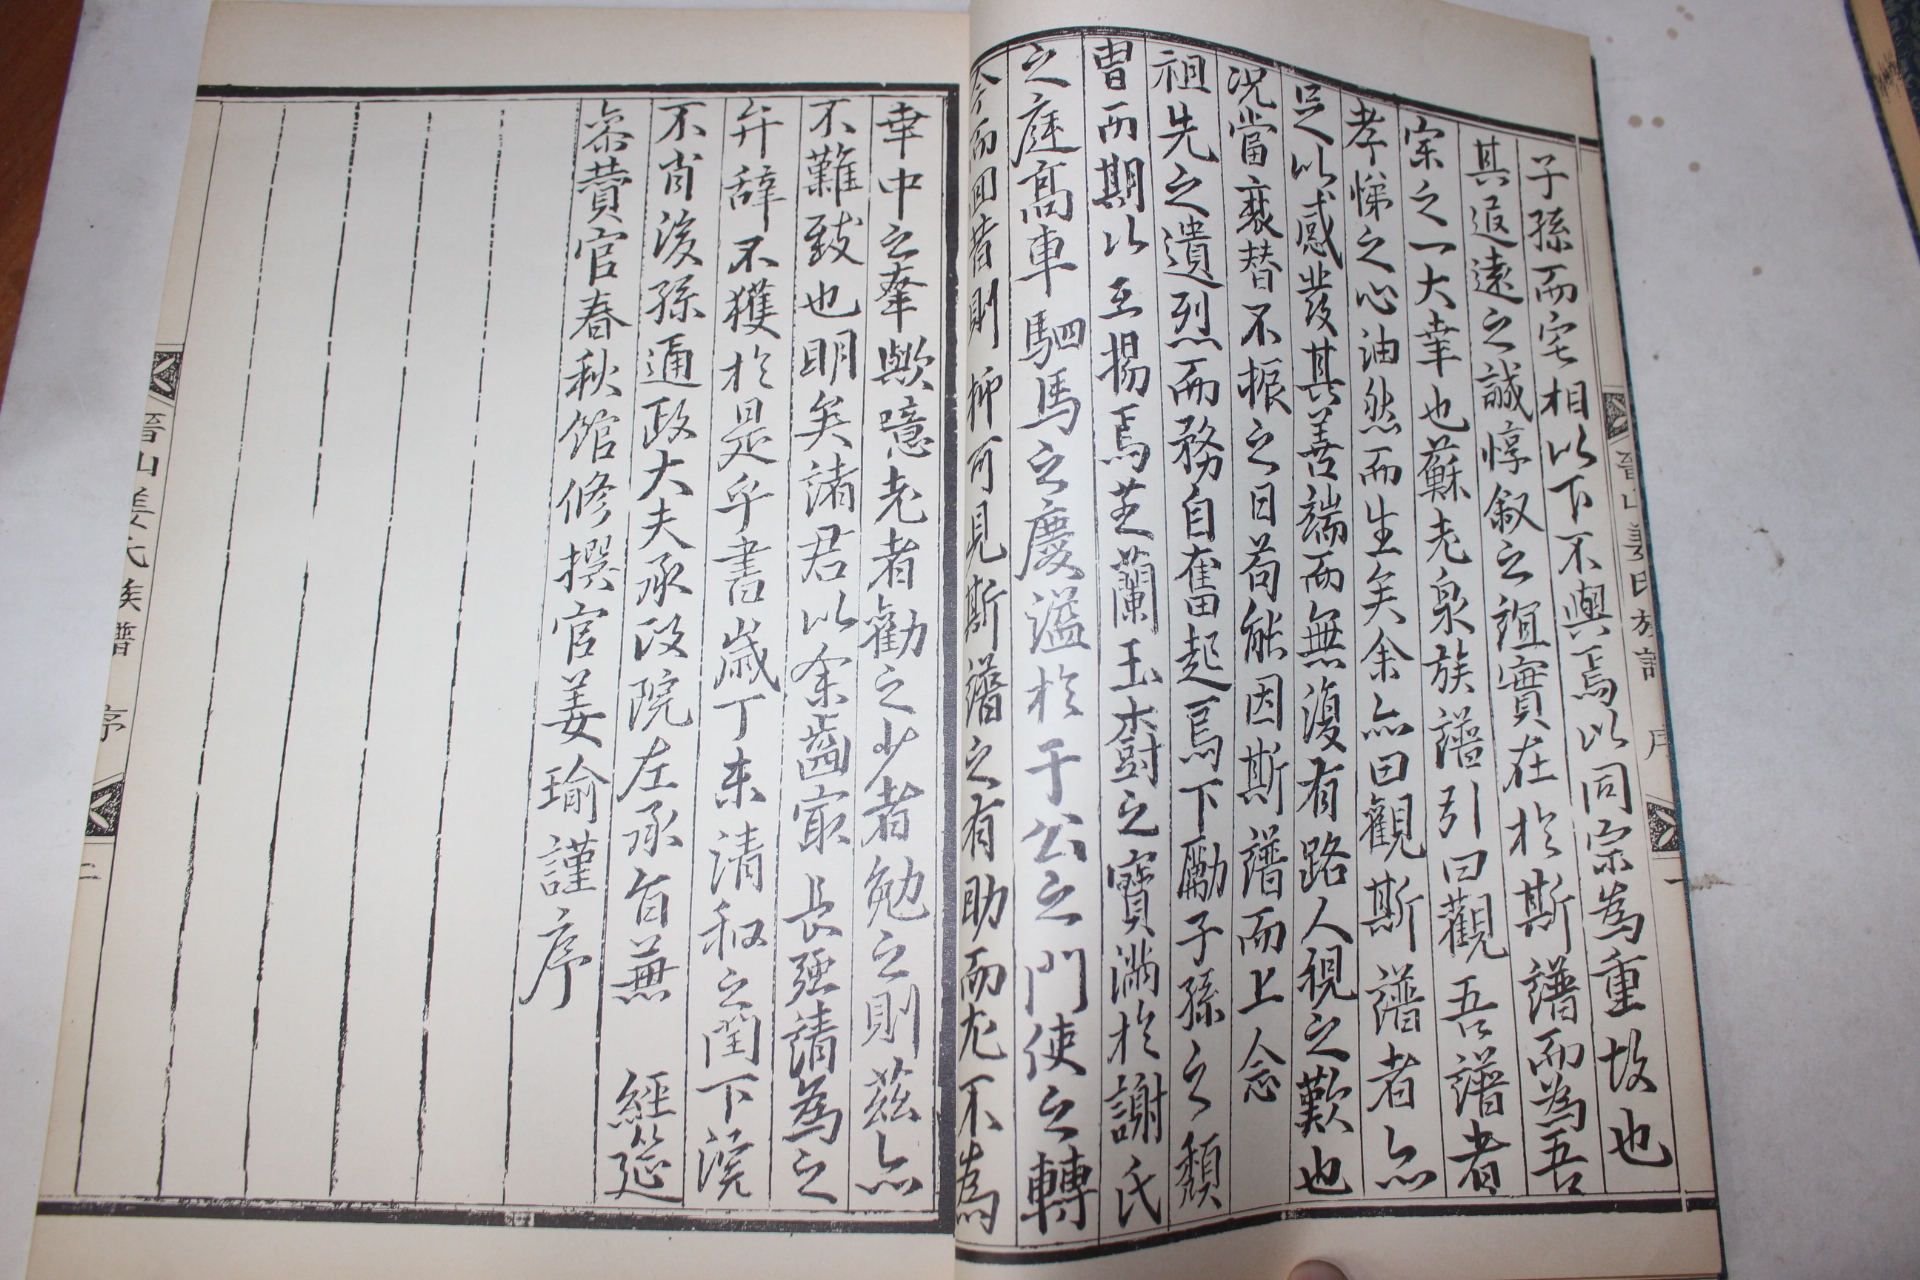 子孫而宅相以下不與焉以同宗為重故也
其追遠之誠惇叙之誼實在於斯譜而為吾
宗之一大幸也蘇老泉族譜引曰觀吾譜者
孝悌之心油然而生矣余亦曰觀斯譜者亦
足以感發其善端而無復有路人視之歎也
況當衰替不振之日苟能因斯譜而上念
祖先之遺烈而務自奮起焉下勵子孫之頹
胄而期以至揚焉芝蘭玉樹之寶滿於謝氏
之庭高車駟馬之慶溢於于公之門使之轉
今而回昔則抑可見斯譜之有助而尤不為
幸中之幸歟噫老者勸之少者勉之則茲亦
不難致也明矣諸君以余齒最長强請為之
弁辞不獲於是乎書歲丁未清和之閏下浣
不肖後孫通政大夫承政院左承旨兼 經筵
叅賛官春秋館修撰官姜瑜謹序
晉山姜氏族譜 序 二
晉山姜氏族譜 序 一